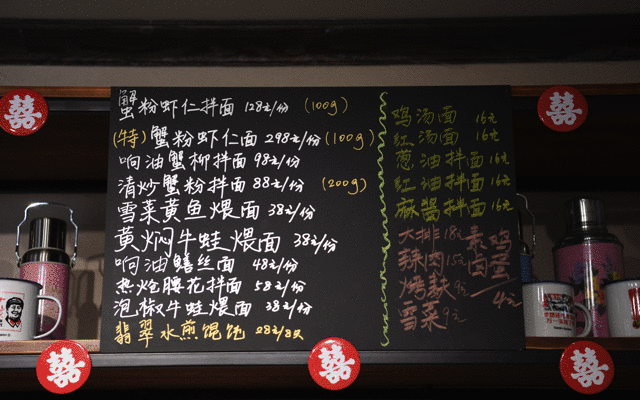 蟹粉虾仁拌面 128元/份 (100g)
(特)蟹粉虾仁面 298元/份 (100g)
响油蟹柳拌面 98元/份
清炒蟹粉拌面 88元/份 (200g)
雪菜黄鱼煨面 38元/份
黄焖牛蛙煨面 38元/份
响油鳝丝面 48元/份
热炝腰花拌面 58元/份
泡椒牛蛙煨面 38元/份
翡翠水煎馄饨 28元/8只
鸡汤面 16元
红汤面 16元
葱油拌面 16元
红油拌面 16元
麻酱拌面 16元
大排 18元
辣肉 15元
烤麸 9元
雪菜 9元
素鸡
卤蛋
4元
囍
囍
囍
囍
囍